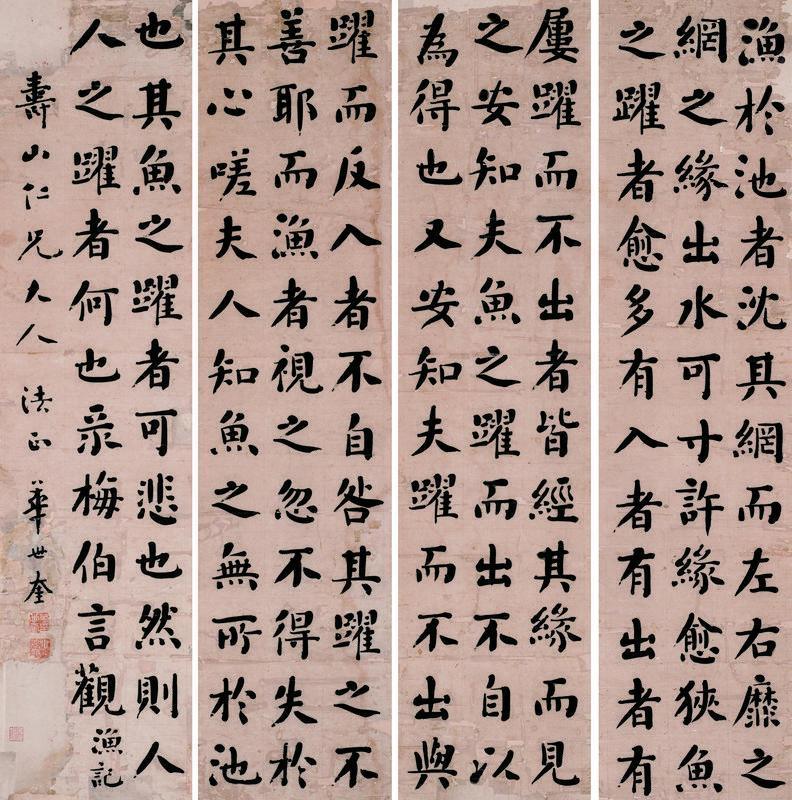 漁於池者沈其網而左右靡之
網之緣出水可寸許緣愈狹魚
之躍者愈多有入者有出者有
屢躍而不出者皆經其緣而見
之安知夫魚之躍而出不自以
為得也又安知夫躍而不出與
躍而反入者不自咎其躍之不
善耶而漁者視之忽不得失於
其心嗟夫人知魚之無所於池
也其魚之躍者可悲也然則人
人之躍者何也录梅伯言觀漁記
壽山仁兄大人法正華世奎